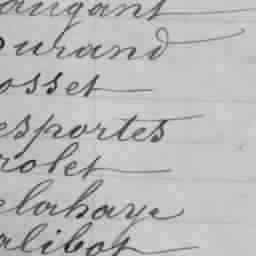 augant
urand
osset
esportes
rolet
elahaye
alibot